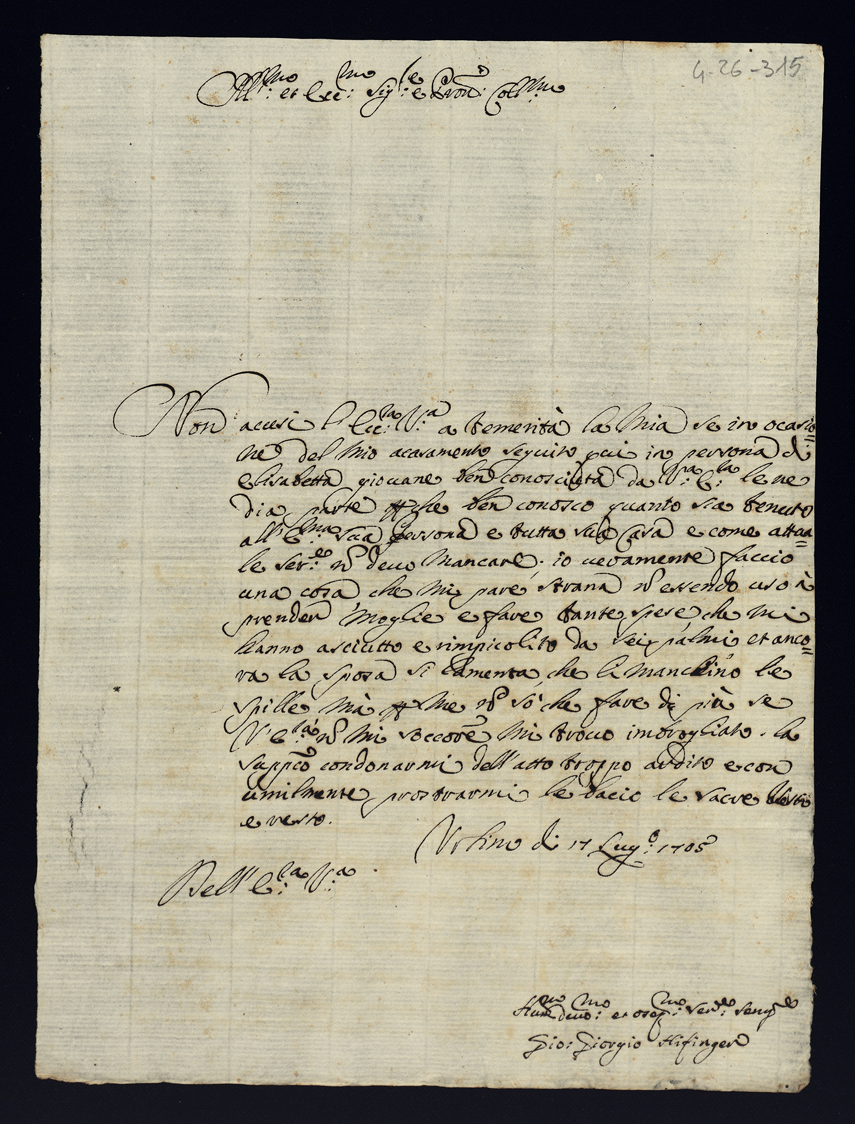 4-26-315
Ill:mo et Ecc:mo Sig:re e Pron: Col:mo
Non accusi l'Ecc:za V:a a temerità la mia se in ocasio=
ne del mio acasamento seguito qui in persona di
Elisabetta giovane ben conosciuta da V:ra E:za le ne
dia parte che ben conosco quanto sia tenuto
all'E:ma sua persona e tutta sua Casa e come attua=
le ser:re nõ devo mancare. io veramente faccio
una cosa che mi pare strana nõ essendo uso à
prender moglie e fare tante spese che mi
hanno asciutto e rimpicolito da sei palmi et anco=
ra la sposa si lamenta che li manchino le
spille mà me nõ sò che fare di più se
V E:za nõ mi soccore mi trovo imbrogliato. la
suppco condonarmi dell'atto troppo ardito e con
umilmente prostrarmi le bacio le sacre
e resto.
Urbino di 17 Lug:o 1705
Dell'E:za V:a
Hum:mo devo:mo et oseq:mo ser:re
Gio: Giorgio Hifinger